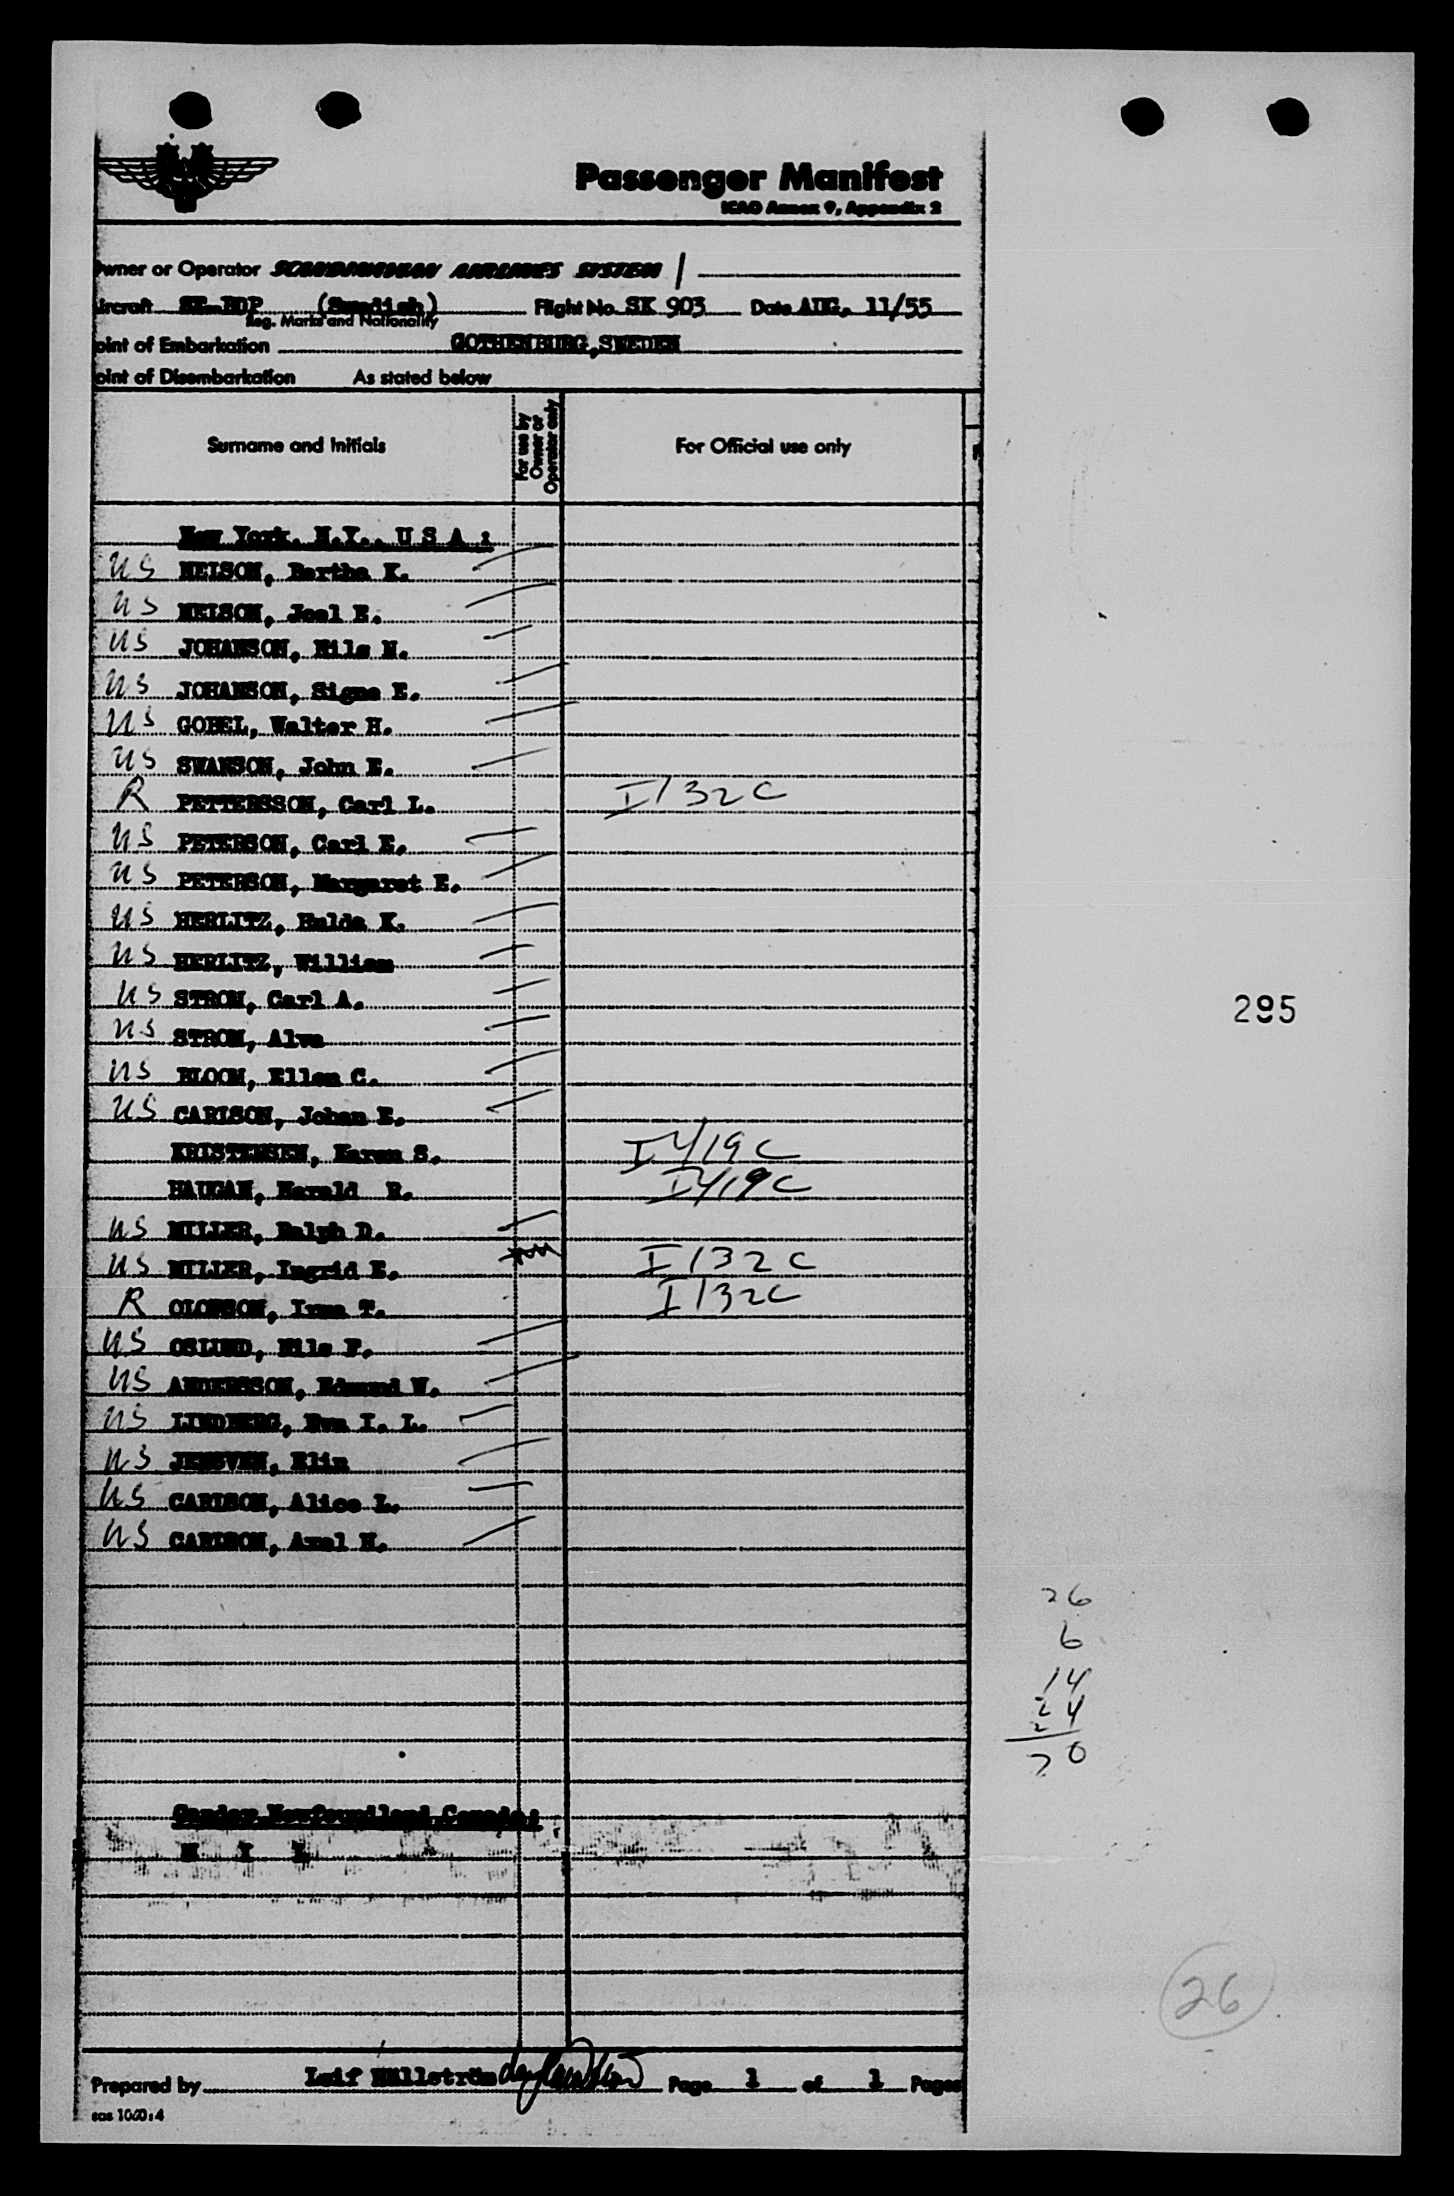 Passenger Manifest
ICAO Annex 9, Appendix 2
wner or Operator SCANDINAVIAN AIRLINES SYSTEM /
ircraft SE-BDP (Swedish) Flight No. SK 903 Date AUG. 11/55
Reg. Marks and Nationality
oint of Embarkation GOTHENBURG, SWEDEN
oint of Disembarkation As stated below
Surname and Initials For use by Owner or Operator only For Official use only
New York. N.Y., U S A :
US NELSON, Bertha K.
US NELSON, Joel E.
US JOHANSON, Nils N.
US JOHANSON, Signe E.
US GOBEL, Walter H.
US SWANSON, John E.
R PETTERSSON, Carl L. I 132C
US PETERSON, Carl E.
US PETERSON, Margaret E.
US HERLITZ, Hulda K.
US HERLITZ, William
US STROM, Carl A.
US STROM, Alva
US BLOOM, Ellen C.
US CARLSON, Johan E.
KRISTENSEN, Karen S. I 419C
HAUGAN, Harald R. I 419C
US MILLER, Ralph D.
US MILLER, Ingrid E. I 132C
R OLOFSON, T. I 132C
US OSLUND, Nils F.
US ANDERSSON, Edmund W.
US LINDBERG, Eva I. L.
US JENSVEN, Elin
US CARLSON, Alice L.
US CARLSON, Axel H.
295
26
6
14
24
2
70
Gander Newfoundland Canada:
N I L
26
Prepared by Leif Hällström Page 1 of 1 Pages
sas 1060:4